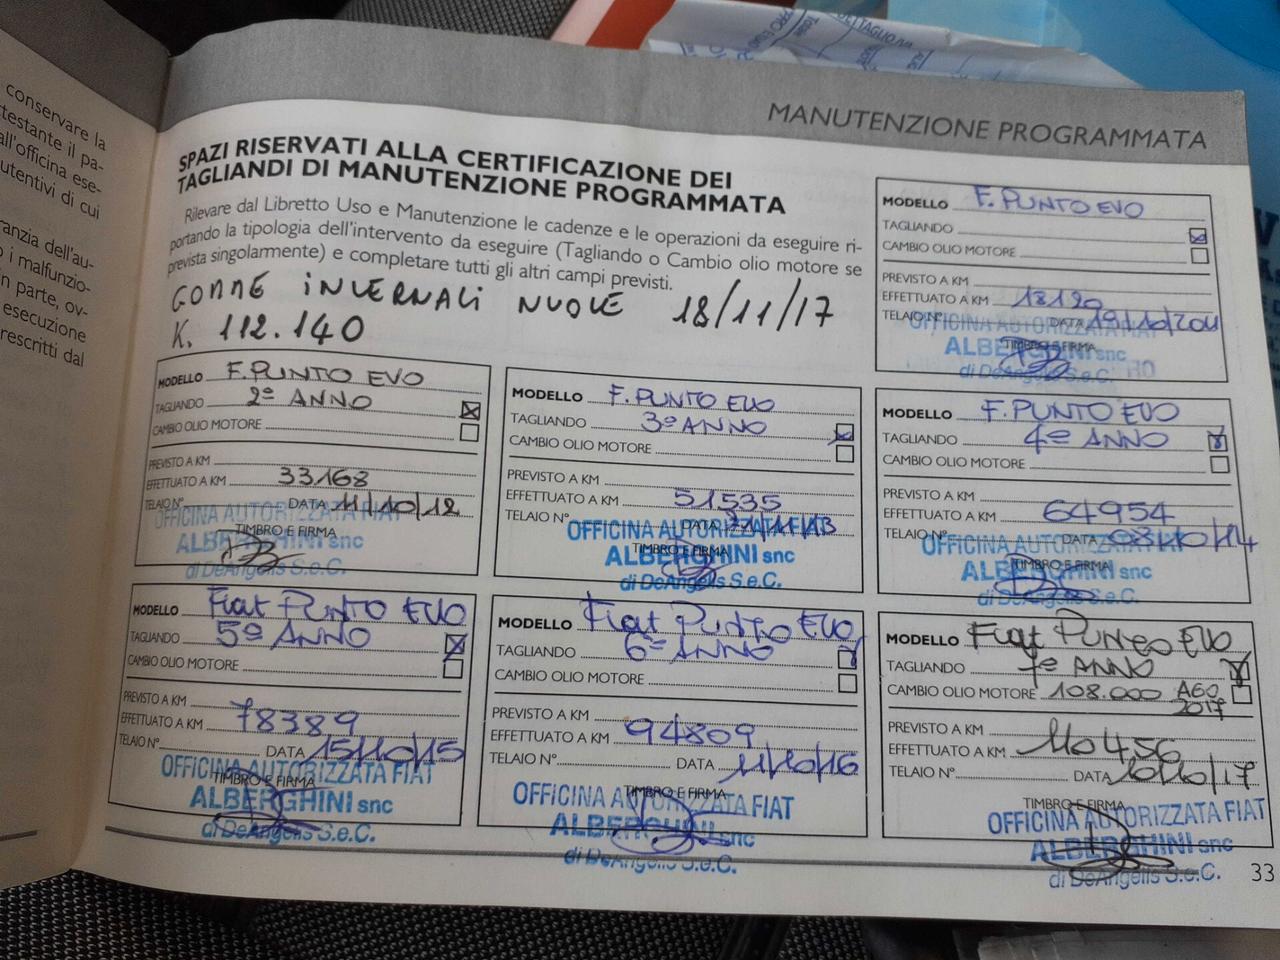 conservare la
testante il pa-
all'officina ese-
utentivi di cui
ranzia dell'au-
o i malfunzio-
n parte, ov-
esecuzione
rescritti dal
MANUTENZIONE PROGRAMMATA
SPAZI RISERVATI ALLA CERTIFICAZIONE DEI
TAGLIANDI DI MANUTENZIONE PROGRAMMATA
Rilevare dal Libretto Uso e Manutenzione le cadenze e le operazioni da eseguire ri-
portando la tipologia dell'intervento da eseguire (Tagliando o Cambio olio motore se
prevista singolarmente) e completare tutti gli altri campi previsti.
GOMME INVERNALI NUOVE 18/11/17
K. 112.140
MODELLO F. PUNTO EVO
TAGLIANDO
CAMBIO OLIO MOTORE
PREVISTO A KM
EFFETTUATO A KM 18120
TELAIO N° DATA 19/10/2011
TIMBRO E FIRMA
OFFICINA AUTORIZZATA
ALBERGHINI snc
di DeAngelis S.e.C.
MODELLO F. PUNTO EVO
TAGLIANDO 2º ANNO
CAMBIO OLIO MOTORE
PREVISTO A KM
EFFETTUATO A KM 33168
TELAIO N° DATA 11/10/12
TIMBRO E FIRMA
OFFICINA AUTORIZZATA FIAT
ALBERGHINI snc
di DeAngelis S.e.C.
MODELLO F. PUNTO EVO
TAGLIANDO 3º ANNO
CAMBIO OLIO MOTORE
PREVISTO A KM
EFFETTUATO A KM 51535
TELAIO N° DATA
TIMBRO E FIRMA
OFFICINA AUTORIZZATA FIAT
ALBERGHINI snc
di DeAngelis S.e.C.
MODELLO F. PUNTO EVO
TAGLIANDO 4º ANNO
CAMBIO OLIO MOTORE
PREVISTO A KM
EFFETTUATO A KM 64954
TELAIO N° DATA 08/10/14
TIMBRO E FIRMA
OFFICINA AUTORIZZATA FIAT
ALBERGHINI snc
di DeAngelis S.e.C.
MODELLO Fiat PUNTO EVO
TAGLIANDO 5º ANNO
CAMBIO OLIO MOTORE
PREVISTO A KM
EFFETTUATO A KM 78389
TELAIO N° DATA 15/10/15
TIMBRO E FIRMA
OFFICINA AUTORIZZATA FIAT
ALBERGHINI snc
di DeAngelis S.e.C.
MODELLO Fiat Punto EVO
TAGLIANDO 6º ANNO
CAMBIO OLIO MOTORE
PREVISTO A KM
EFFETTUATO A KM 94809
TELAIO N° DATA 11/10/16
TIMBRO E FIRMA
OFFICINA AUTORIZZATA FIAT
ALBERGHINI snc
di DeAngelis S.e.C.
MODELLO Fiat Punto EVO
TAGLIANDO 7º ANNO
CAMBIO OLIO MOTORE 108.000 AGO 2017
PREVISTO A KM
EFFETTUATO A KM 110456
TELAIO N° DATA 10/10/17
TIMBRO E FIRMA
OFFICINA AUTORIZZATA FIAT
ALBERGHINI snc
di DeAngelis S.e.C.
33